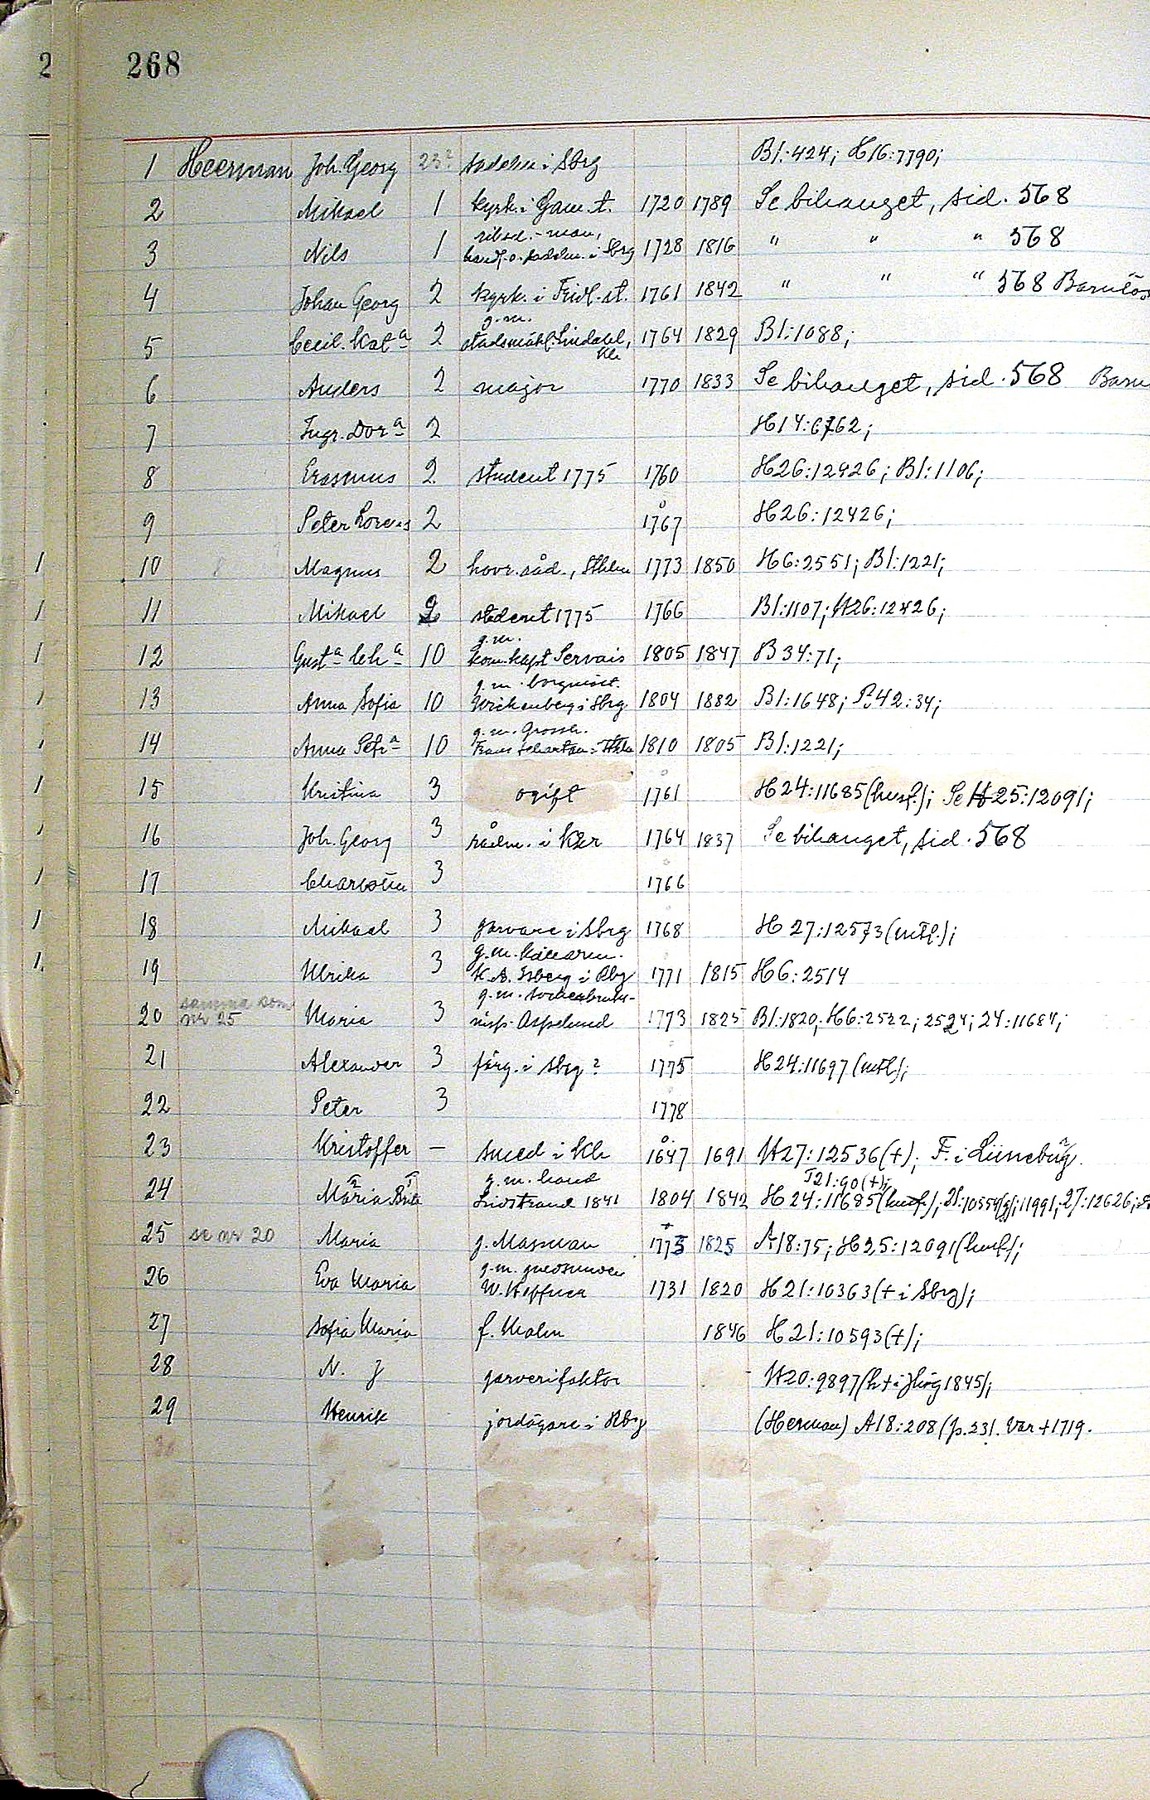 2 268
1 Heerman Joh. Georg 23? sadelm i Sbrg Bl:424; H16:7790;
2 Mikael 1 kyrk. i Gam. t. 1720 1789 Se bihanget, sid. 568
3 Nils 1 riksd.-man, handl. o. sadelm. i Sbrg 1728 1816 " " " 568
4 Johan Georg 2 kyrk. i Fridl. st. 1761 1842 " " " 568 Barnlös
5 Cecil. Kat:a 2 g.m. stadsmäkl. Lindahl, Kli 1764 1829 Bl:1088;
6 Anders 2 major 1770 1833 Se bihanget, sid. 568 Barn
7 Ingr. Dor:a 2 H14:6762;
8 Erasmus 2 student 1775 1760 H26:12426; Bl:1106;
9 Peter Lorens 2 1767 H26:12426;
1 10 8 Magnus 2 hovr. råd., Sthlm 1773 1850 H6:2551; Bl:1221;
1 11 Mikael 2 student 1775 1766 Bl:1107; H26:12426;
1 12 Gust:a Ch:a 10 g.m. kom. kapt Servais 1805 1847 B34:71;
1 13 Anna Sofia 10 g.m. borgmäst. Wickenberg i Sbrg 1804 1882 Bl:1648; P.42:34;
1 14 Anna Petr:a 10 g.m. Grossh. Frans Schartau i Sthlm 1810 1805 Bl:1221;
1 15 Kristina 3 ogift 1761 H24:11685 (husf.); Se H25:12091;
1 16 Joh. Georg 3 rådm. i Kkr 1764 1837 Se bihanget, sid. 568
1 17 Charlotta 3 1766
1 18 Mikael 3 garvare i Sbrg 1768 H27:12573 (mtl.);
1 19 Ulrika 3 g.m. källarm. K.A. Isberg i Kbg 1771 1815 H6:2514
20 samma som nr 25 Maria 3 g.m. sockerbruks- insp. Asplund 1773 1825 Bl:1820; H6:2522; 2524; 24:11684;
21 Alexander 3 färg. i Sbrg? 1775 H24:11697 (mtl.);
22 Peter 3 1778
23 Kristoffer — smed i Kh 1647 1691 H27:12536 (+); F. i Lüneburg.
24 Maria Brita g.m. hand Lidstrand 1841 1804 1842 J21:90 (+); H24:11685 (husf.); 21:10554(g); 11991; 27:12626;
25 se nr 20 Maria g. Massman 1773 1825 A18:75; H25:12091 (husf.);
26 Eva Maria g.m. guldsmeden W. Heffner 1731 1820 H21:10363 (+ i Sbrg);
27 Sofia Maria f. Malm 1846 H21:10593 (+);
28 N. J garverifaktor H20:9897 (h + i Jkög 1845);
29 Henrik jordägare i Hbg (Herman) A18:208 (p.23). Var + 1719.